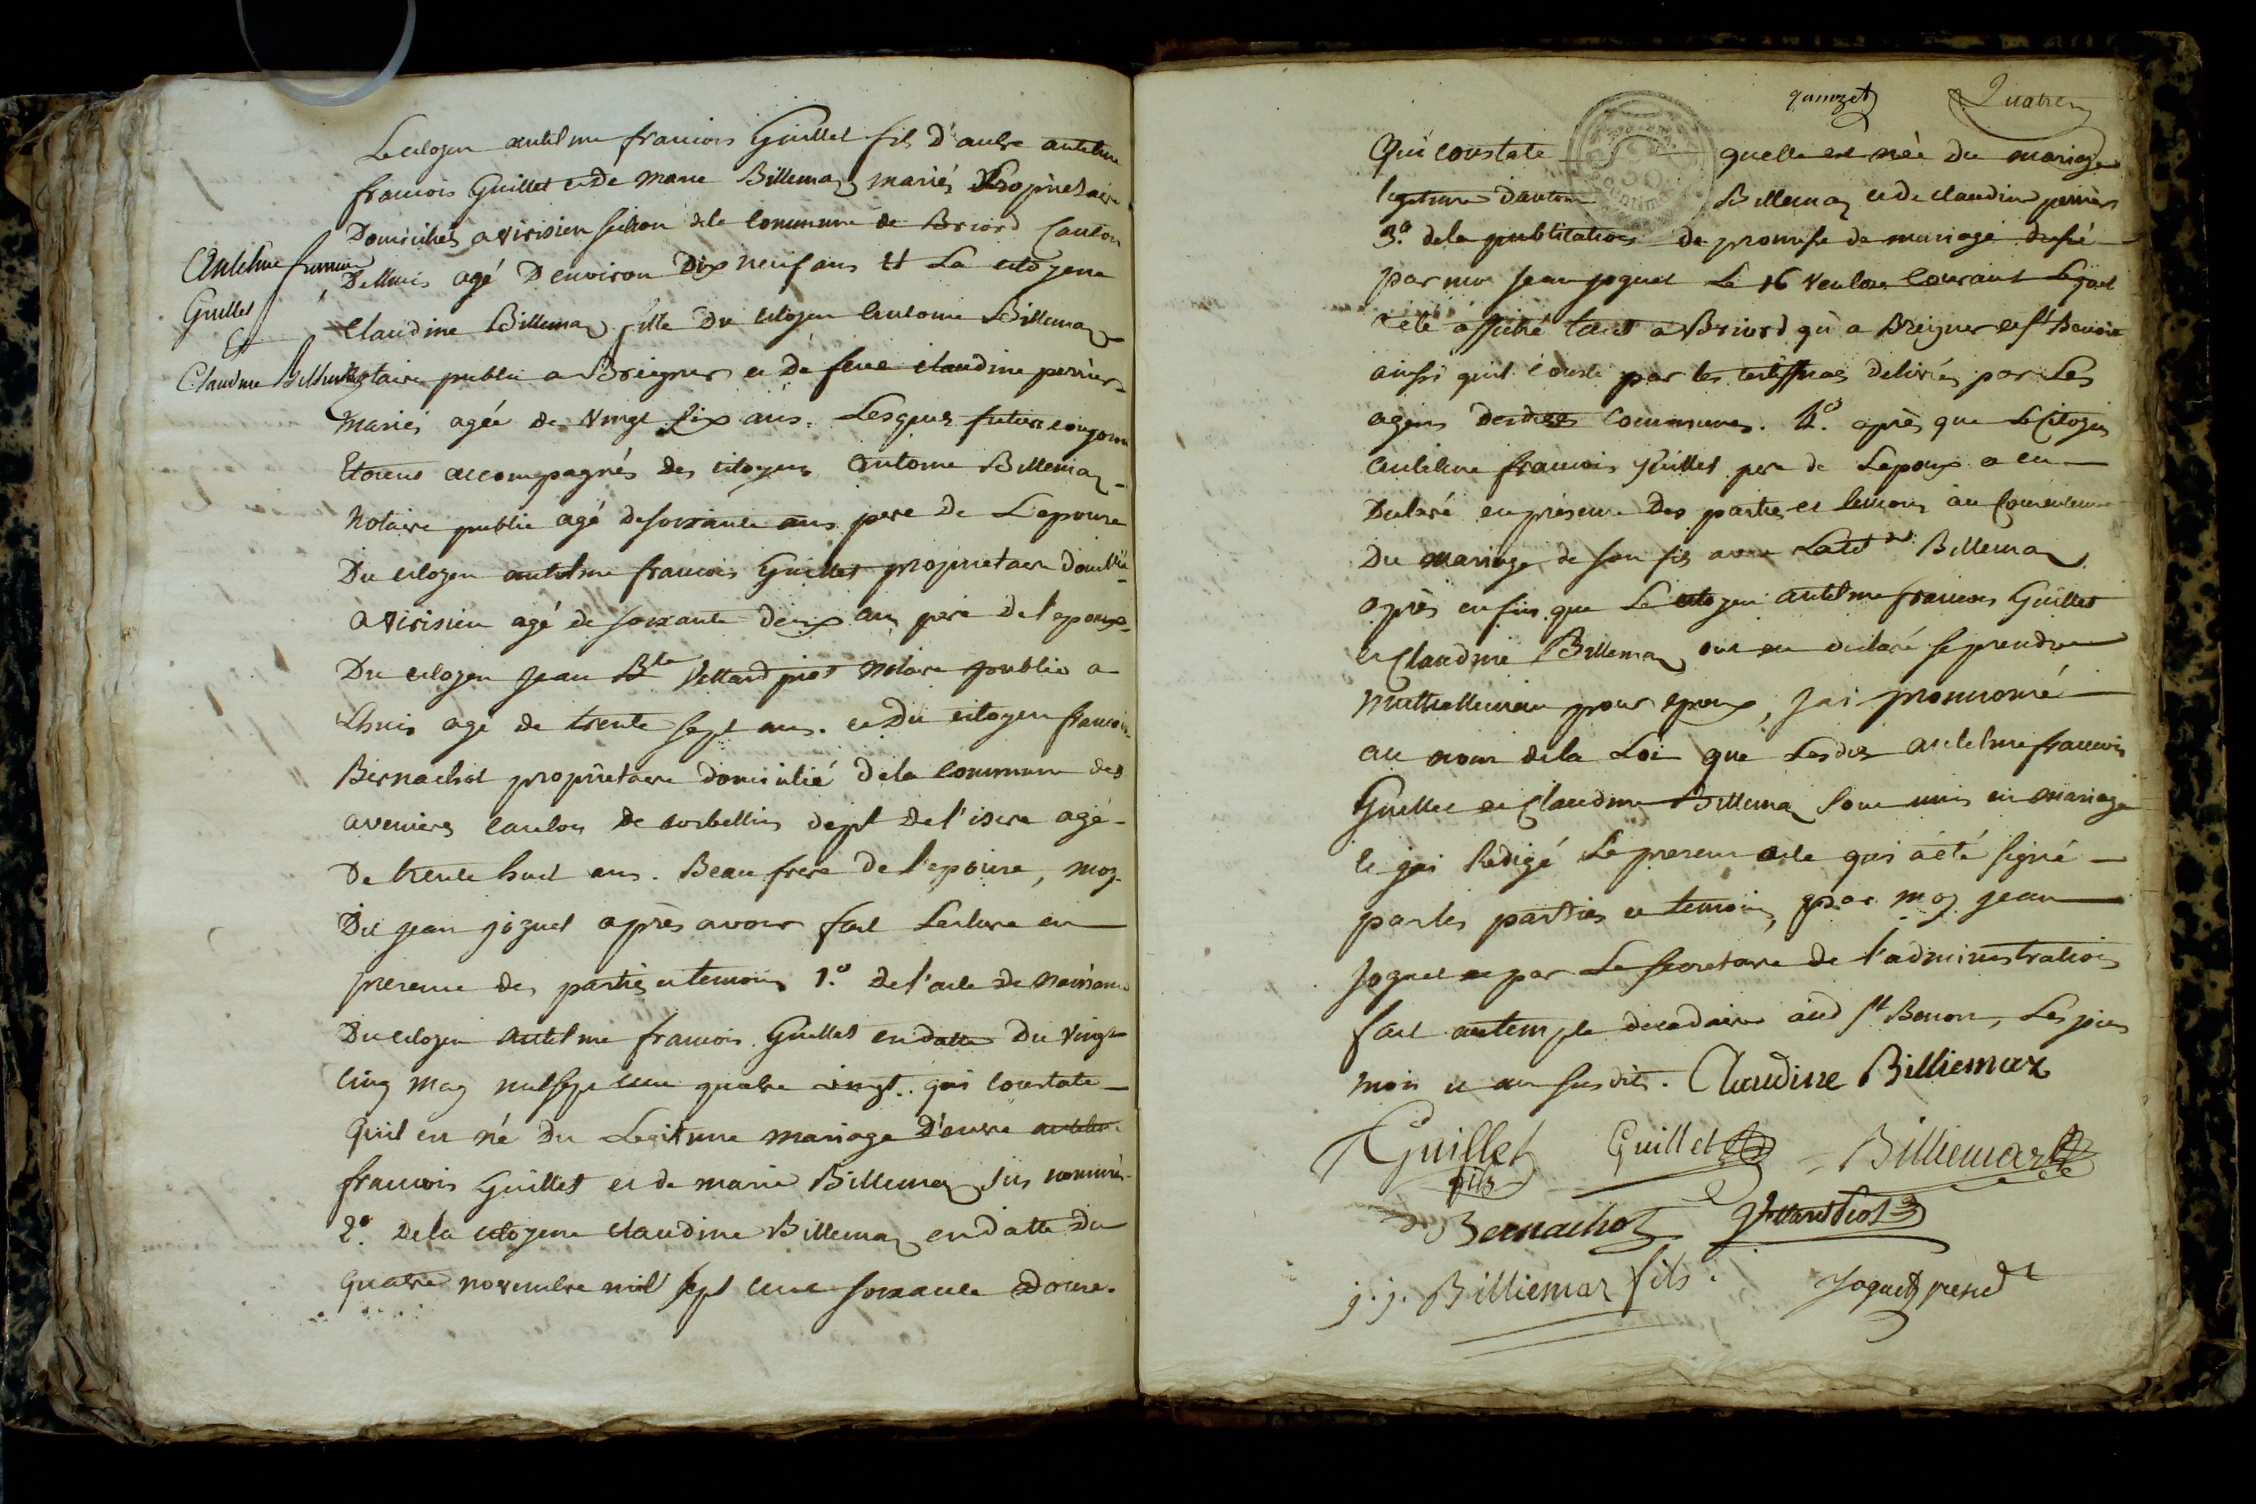 Le citoyen antelme francois Guillet fils d'autre antelme
francois Guillet et de marie Billemaz mariés Proprietaires
Domiciliés a virisieu section de la commune de Briord Canton
Antelme francois
Guillet
Et
Claudine Billemaz
De lhuis agé D'environ Dix neuf ans Et La citoyene
Claudine Billemaz fille Du citoyen Antoine Billemaz
notaire public a Breignes et de feue claudine perrier
Mariés agée de vingt six ans. Lesquels futurs conjoins
Etoient accompagnés des citoyens Antoine Billemaz
Notaire public agé de soixante ans pere de L'epouse
Du citoyen antelme francois Guillet proprietaire domilié
a virisieu agé de soixante deux ans pere de l'epoux
Du citoyen Jean Bte Vettard piot Notaire public a
Lhuis agé de trente sept ans. et Du citoyen francois
Bernachot proprietaire domicilié de la commune des
avenieres canton de dept de l'isere agé
De trente huit ans. Beau frere de l'epouse, moy
Dit jean joguet après avoir fait Lecture en
presence des parties et temoins 1.° de l'acte de naissance
Du citoyen Antelme francois Guillet en datte Du vingt
cinq may mil sept cent quatre vingt. qui constate
Qu'il est né Du Legitime mariage D'autre antelme
francois Guillet et de marie Billemaz sus nommés
2.° De la citoyene claudine Billemaz en datte du
quatre novembre mil sept cent soixante Douze.
Quatre
Qui constate quelle est née du mariage
legitime d'antoine Billemaz et de claudine perrier
3.° de la publication de promesse de mariage
par moi jean joguet Le 16 ventose courant Lequel
a été affiché tant a Briord qu'a Breignes et St Benoit
ainsi qu'il conste par les certifficats delivrés par Les
agens desdites communes. 4.° après que Le Citoyen
antelme francois Guillet pere de L'epoux a eu
Declaré en presence Des parties et temoins au
Du mariage de son fils avec Billemaz
après enfin que Le citoyen antelme francois Guillet
et Claudine Billemaz ont eu declaré se prendre
Mutuellement pour epoux, j'ai prononcé
au nom de la Loi que Lesdits antelme francois
Guillet et Claudine Billemaz sont unis en mariage
et j'ai Rédigé Le present acte qui a été signé
par les parties et temoins, par moy jean
joguet et par Le secretaire de l'administration
fait au temple decadaire aud St Benoit, Les jour
mois et an susdits. Claudine Billiemaz
Guillet
fils
Guillet
Billiemaz
Bernachot
Vettard Piot
j. j. Billiemaz fils.
Joguet presidt